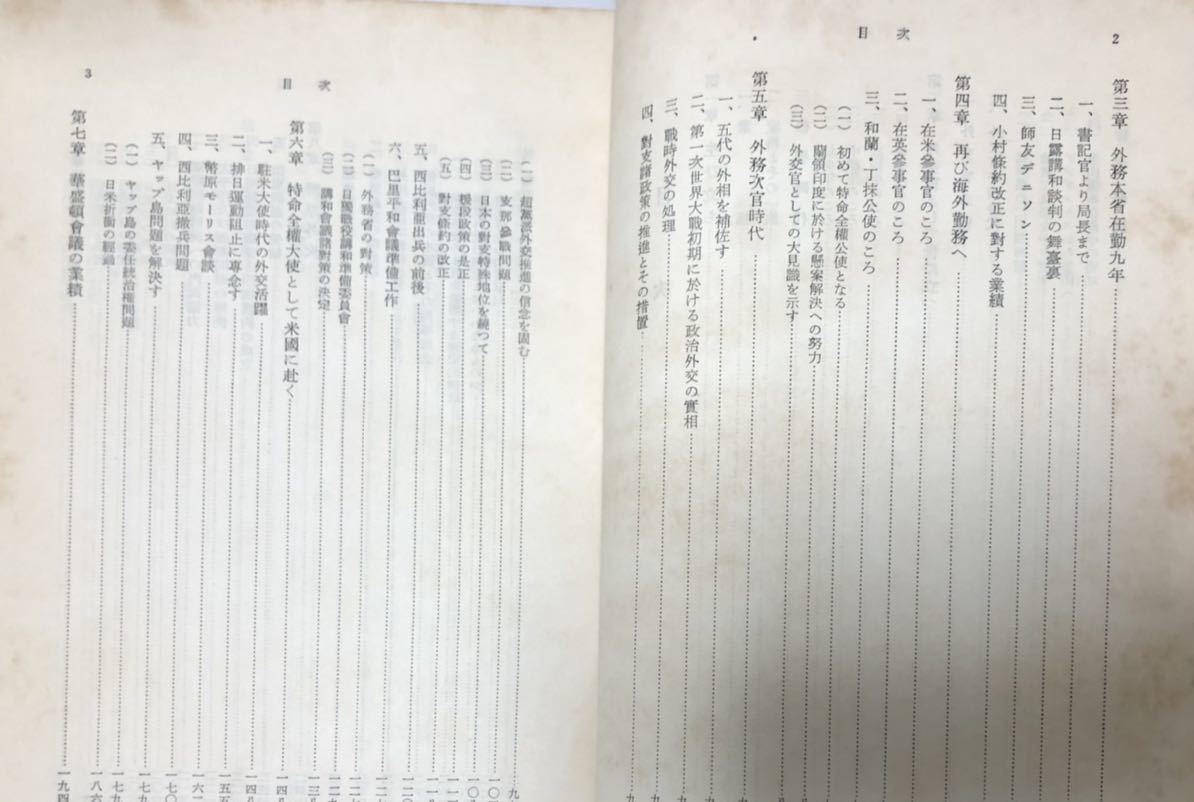 目次
2
第三章 外務本省在勤九年
一、書記官より局長まで
二、日露講和談判の舞臺裏
三、師友デニソン
四、小村條約改正に対する業績
第四章 再び海外勤務へ
一、在米參事官のころ
二、在英參事官のころ
三、和蘭・丁抹公使のころ
(一) 初めて特命全權公使となる
(二) 蘭領印度に於ける懸案解決への努力
(三) 外交官としての大見識を示す
第五章 外務次官時代
一、五代の外相を補佐す
二、第一次世界大戰初期に於ける政治外交の實相
三、戰時外交の処理
四、對支諸政策の推進とその措置
目次
3
(一) 超黨派外交推進の信念を固む
(二) 支那參戰問題
(三) 日本の對支特殊地位を繞つて
(四) 援段政策の是正
(五) 對支條約の改正
五、西比利亜出兵の前後
六、巴里平和會議準備工作
(一) 外務省の對策
(二) 日獨戰役講和準備委員會
(三) 講和會議諸對策の決定
第六章 特命全權大使として米國に赴く
一、駐米大使時代の外交活躍
二、排日運動阻止に専念す
三、幣原モーリス會談
四、西比利亜撤兵問題
五、ヤップ島問題を解決す
(一) ヤップ島の委任統治権問題
(二) 日米折衝の經過
第七章 華盛頓會議の業績